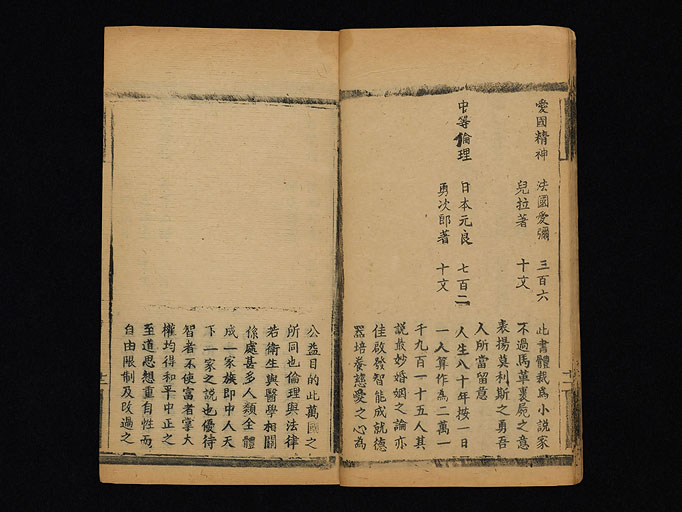 愛國精神 法國愛彌 三百六 此書體裁爲小說家
兒拉著 十文 不過馬革裹屍之意
表揚莫利斯之勇吾
人所當留意
中等倫理 日本元良 七百二 人生八十年按一日
勇次郎著 十文 一人算作為二萬一
千九百一十五人其
說最妙婚姻之論亦
佳啟發智能成就德
器培養戀愛之心為
公益目的此萬國之
所同也倫理與法律
若衛生與醫學相關
係處甚多人類全體
成一家族即中人天
下一家之說也優待
智者不使富者掌大
權均得和平中正之
至道思想重自性而
自由限制及改過之